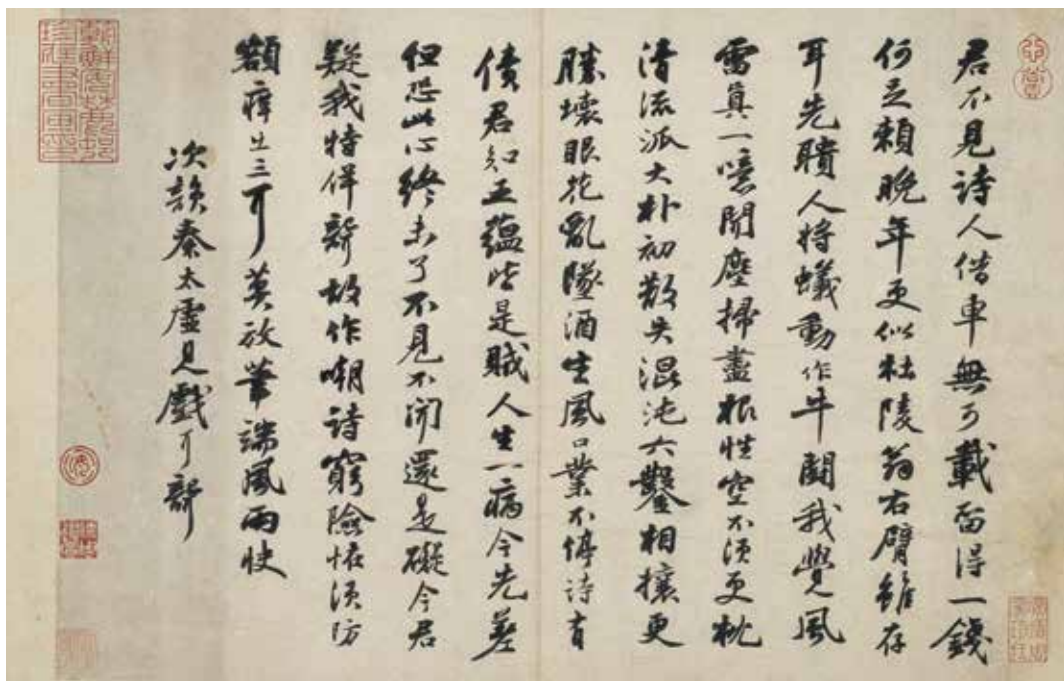 君不見詩人借車無可載留得一錢
何足賴晚年更似杜陵翁右臂雖存
耳先聵人將蟻動作牛鬬我覺風
雷真一噫聞塵掃盡根性空不須更枕
清流派大朴初散失混沌六鑿相攘更
勝壞眼花亂墜酒生風口業不停詩有
債君知五蘊皆是賊人生一病今先差
但恐此心終未了不見不聞還是礙今君
疑我特佯聾故作嘲詩窮險怪須防
額痒出三耳莫放筆端風雨快
次韻秦太虛見戲耳聾